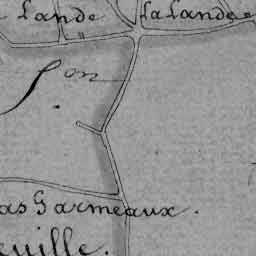 Lande
la Lande
son
as Garmeaux.
euille.